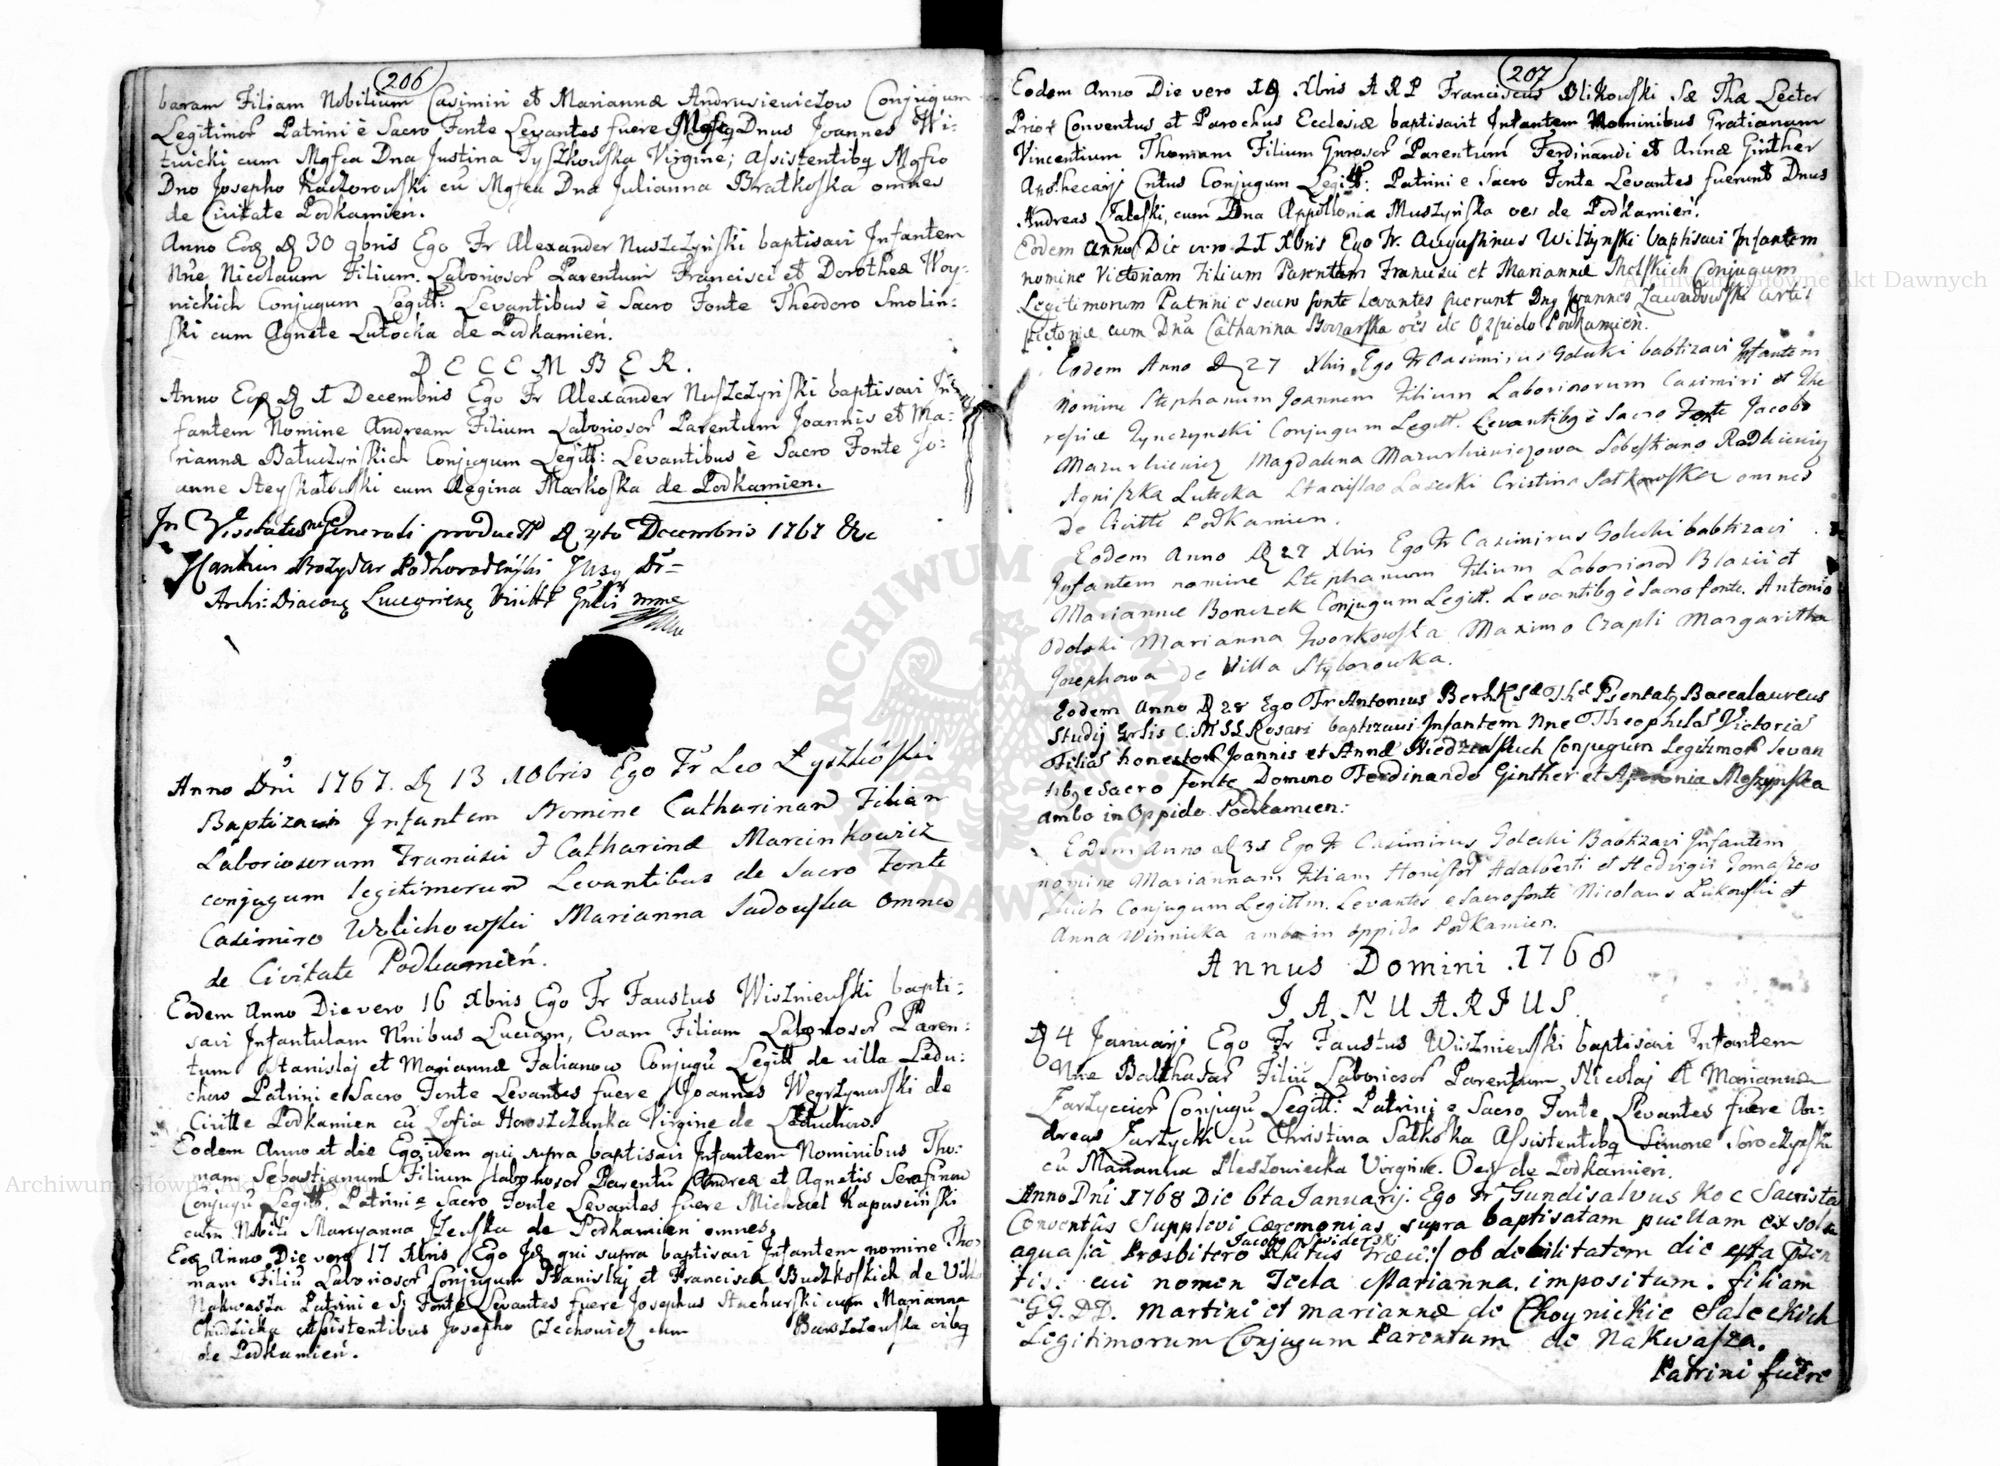 206
baram Filiam Nobilium Casimiri et Mariannæ Andrusiewiczow Conjugum
Legitimor Patrini è Sacro Fonte Levantes fuere Mgfcg Dnus Joannes Wi-
twicki cum Mgfca Dna Justina Tyszkowska Virgine; Assistentibg Mgfco
Dno Josepho Kaczorowski cu Mgfca Dna Julianna Bratkoska omnes
de Civitate Podkamien.
Anno Eod D 30 9bris Ego Fr Alexander Nuszczyński baptisavi Infantem
Nne Nicolaum Filium Laboriosor Parentum Francisci et Dorotheæ Woy-
nickich Conjugum Legitt: Levantibus è Sacro Fonte Theodoro Smolin-
ski cum Agnete Lutocka de Podkamien.
DECEMBER.
Anno Eod D 1 Decembris Ego Fr Alexander Nuszczyński baptisavi In-
fantem Nomine Andream Filium Laboriosor Parentum Joannis et Ma-
riannæ Batuczyńskich Conjugum Legitt: Levantibus è Sacro Fonte Jo-
anne Steyskalowski cum Regina Markoska de Podkamien.
In Visitatione Generali product D 4to Decembris 1767 &c
Bozydar Podhorodeński
Archi: Diacong Luceorieng Visittr Gnlis mme
Anno Dni 1767. D 13 10bris Ego Fr Leo Łyszkoski
Baptizavi Infantem Nomine Catharinam Filiam
Laboriosorum Francisci & Catharinæ Marcinkowicz
conjugum legitimorum Levantibus de Sacro Fonte
Casimiro Wolichowski Marianna Sadowska omnes
de Civitate Podkamień.
Eodem Anno Die vero 16 Xbris Ego Fr Faustus Wiszniewski bapti-
savi Infantulam Nnibus Luciam, Evam Filiam Laboriosor Paren-
tum Stanislaj et Mariannæ Falianow Conjugu Legitt de villa Ledu-
chow Patrini e Sacro Fonte Levantes fuere Joannes Węgrzynowski de
Civitte Podkamien cu Zofia Horoszczanka Virgine de Leduchow.
Eodem Anno et die Ego idem qui supra baptisavi Infantem Nominibus Tho-
mam Sebastianum Filium Laboriosor Parentu Andreæ et Agnetis Serafinow
Conjugu Legitt. Patrini e Sacro Fonte Levantes fuere Michael Kapusciński
cum Nobili Maryanna de Podkamien omnes.
Eod Anno Die vero 17 Xbris Ego Id qui supra baptisavi Infantem nomine Tho-
mam Filiu Laboriosor Conjugum Stanislaj et Francisca Budzkoskich de Villa
Nakwasza Patrini e S: Fonte Levantes fuere Josephus Stachurski cum Marianna
Chudzicka Assistentibus Josepho Czechowicz cum Barszczewska oibg
de Podkamień.
207
Eodem Anno Die vero 19 Xbris A R P Franciscus Blikowski Sæ Thæ Lector
Prior Conventus et Parochus Ecclesiæ baptisavit Infantem Nominibus Gratianum
Vincentium Thomam Filium Gnrosor Parentum Ferdinandi et Annæ Ginther
Apothecarij Cntus Conjugum Legitt: Patrini e Sacro Fonte Levantes fuerunt Dnus
Andreas Zaleski, cum Dna Appollonia Muszyńska oes de Podkamień.
Eodem Anno Die vero 21 Xbris Ego Fr. Augustinus Wilżynski baptisavi Infantem
nomine Victoriam Filium Parentum Francisci et Mariannæ Conjugum
Legitimorum Patrini e sacro fonte levantes fuerunt Dng Joannes Zawadowski artis
pictoriæ cum Dna Catharina oes de Oppido Podkamień.
Eodem Anno D 27 Xbris Ego Fr Casimirus Golecki babtizavi Infantem
Nomine Stephanum Joannem Filium Laboriosorum Casimiri et The
resiæ Zynczynski Conjugum Legitt. Levantibg è Sacro Fonte Jacobo
Mazurkiewicz Magdalena Mazurkiewiczowa Sebestiano Radkiewicz
Agniszka Lutecka Stanislao Lasecki Cristina Satkowska omnes
de Civitte Podkamien.
Eodem Anno D 27 Xbris Ego Fr Casimirus Golecki babtizavi
Infantem nomine Stephanum Filium Laboriosor Blasii et
Mariannæ Bonczek Conjugum Legitt. Levantibg è Sacro fonte. Antonio
Odolski Marianna Tworkowska Maximo Czapli Margaritha
Josephowa de Villa Styborowka.
Eodem Anno D 28 Ego Fr Antonius Berhk Sæ Thæ Psentatg Baccalaureus
Studij Grlis C: M SS Rosari baptizavi Infantem Nne Theophila Victoria
Filia honestor Joannis et Annæ Conjugum Legitimor Levan
tibg e Sacro fonte Domino Ferdinando Ginther et Apolonia Meszynska
ambo in Oppido Podkamien:
Eodem Anno D 31 Ego Fr Casimirus Golecki Babtizavi Infantem
nomine Mariannam Filiam Honestor Adalberti et Hedvigis Tomaszew
skich Conjugum Legittm. Levantes e Sacro fonte Nicolaus Lukowski et
Anna Winnicka ambo in oppido Podkamien.
Annus Domini .1768
JANUARIUS.
D 4 Januarij Ego Fr Faustus Wiszniewski baptisavi Infantem
Nne Balthasar Filiu Laboriosor Parentum Nicolaj et Mariannæ
Zarzyccior Conjugu Legitt: Patrini e Sacro Fonte Levantes fuere An-
dreas Zarzycki cu Christina Satkoska Assistentibg Simone Soroczynski
cu Marianna Pleszowiecka Virgine. Oes de Podkamien.
Anno Dni 1768 Die 6ta Januarij: Ego Fr Gundisalvus Koc Sacrista
Conventûs Supplevi Cæremonias supra baptisatam puellam ex sola
aqua /â Presbitero Jacobo Swiderski Ritus Græci:/ ob debilitatem die ejsta Pen
tis: cui nomen Tecla Marianna. impositum. filiam
GG. DD. Martini et Mariannæ de Choynickie Saleckich
Legitimorum Conjugum Parentum de Nakwasza.
Patrini fuere
Archiwum Główne Akt Dawnych
Archiwum Główne Akt Dawnych
ARCHIWUM GŁÓWNE AKT DAWNYCH